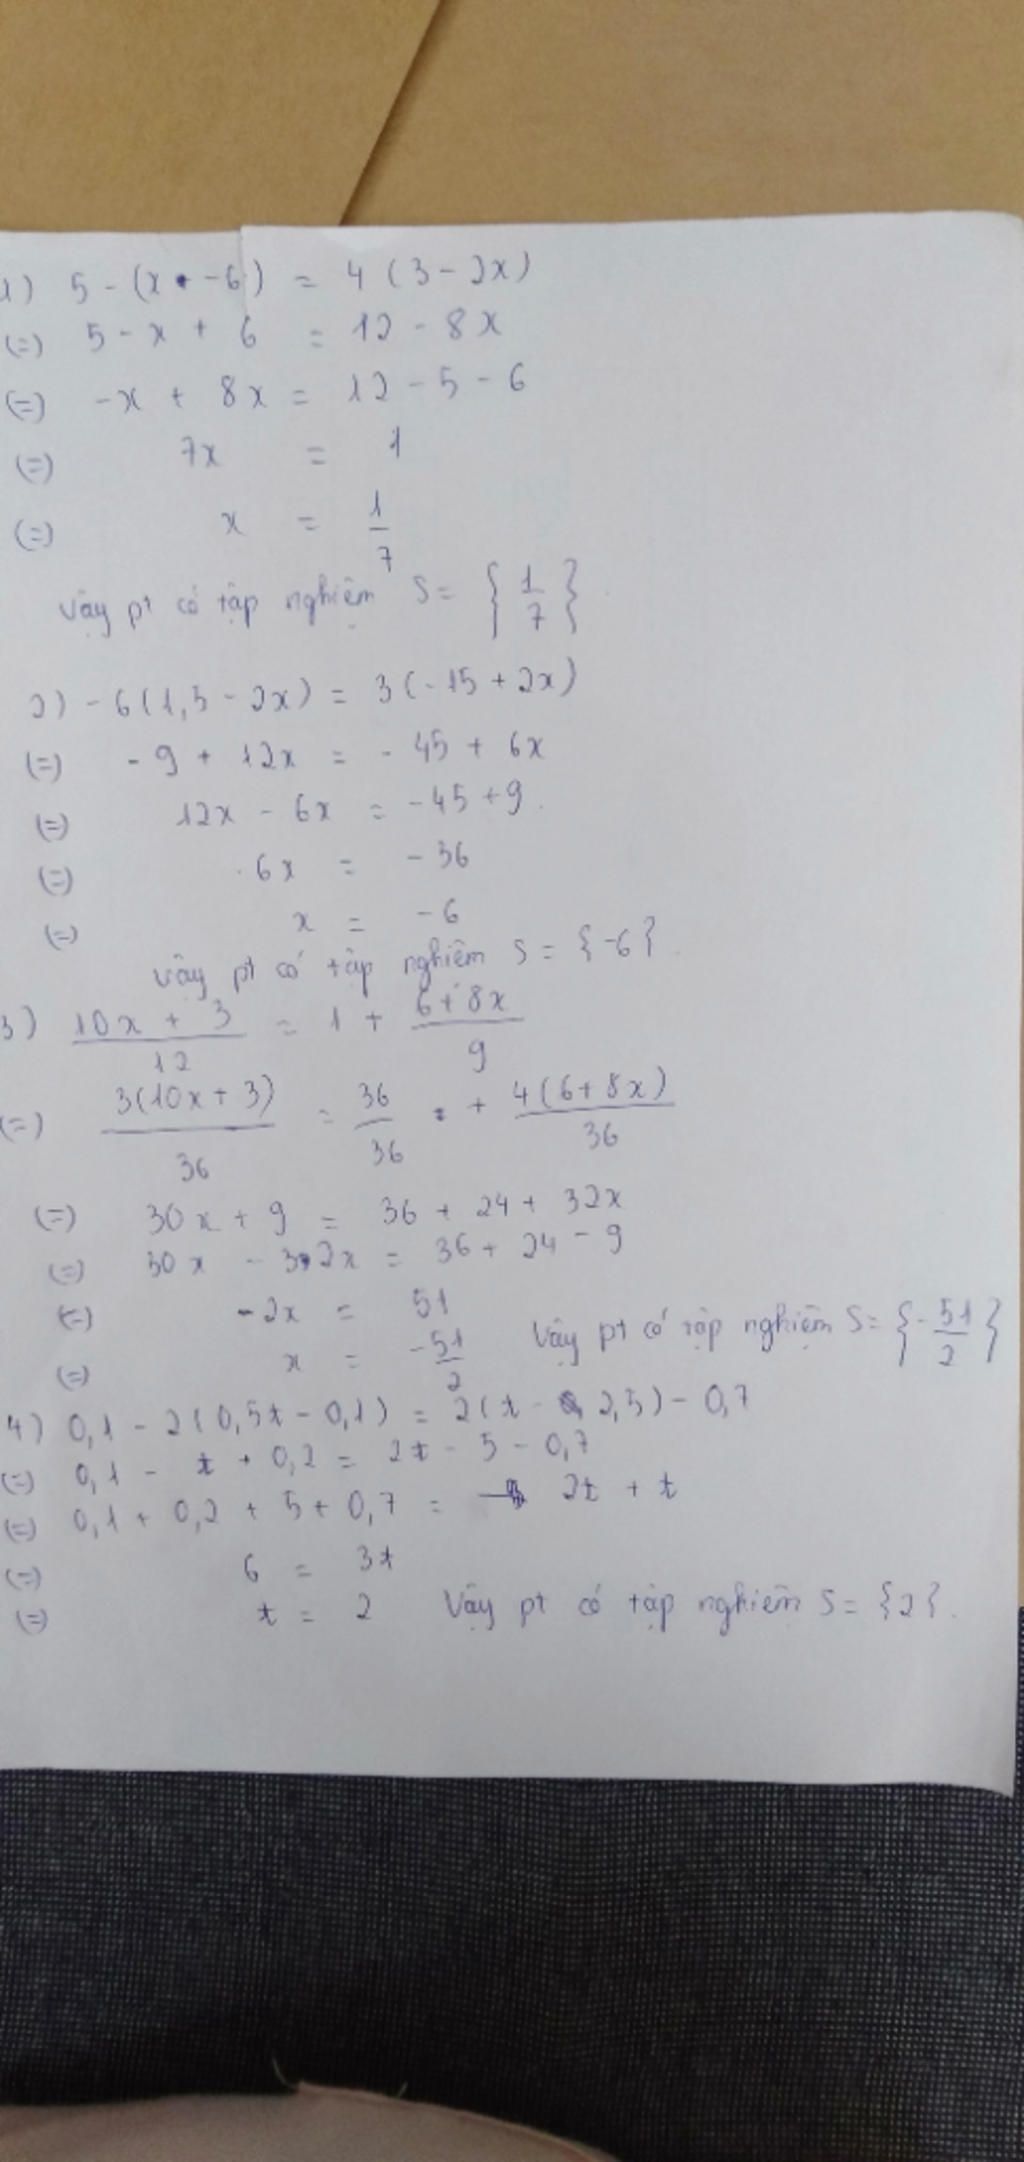 1) 5 - (x - 6) = 4 (3 - 2x)
(=) 5 - x + 6 = 12 - 8x
(=) -x + 8x = 12 - 5 - 6
(=) 7x = 1
(=) x = 1/7
Vậy pt có tập nghiệm S = {1/7}.
2) - 6(1,5 - 2x) = 3(-15 + 2x)
(=) - 9 + 12x = - 45 + 6x
(=) 12x - 6x = -45 + 9.
(=) 6x = - 36
(=) x = - 6
Vậy pt có tập nghiệm S = {-6}.
3) (10x + 3)/12 = 1 + (6 + 8x)/9
(=) 3(10x + 3)/36 = 36/36 + 4(6 + 8x)/36
(=) 30x + 9 = 36 + 24 + 32x
(=) 30x - 32x = 36 + 24 - 9
(=) -2x = 51
(=) x = -51/2 Vậy pt có tập nghiệm S = {-51/2}
4) 0,1 - 2(0,5t - 0,1) = 2(t - 2,5) - 0,7
(=) 0,1 - t + 0,2 = 2t - 5 - 0,7
(=) 0,1 + 0,2 + 5 + 0,7 = 2t + t
(=) 6 = 3t
(=) t = 2 Vậy pt có tập nghiệm S = {2}.